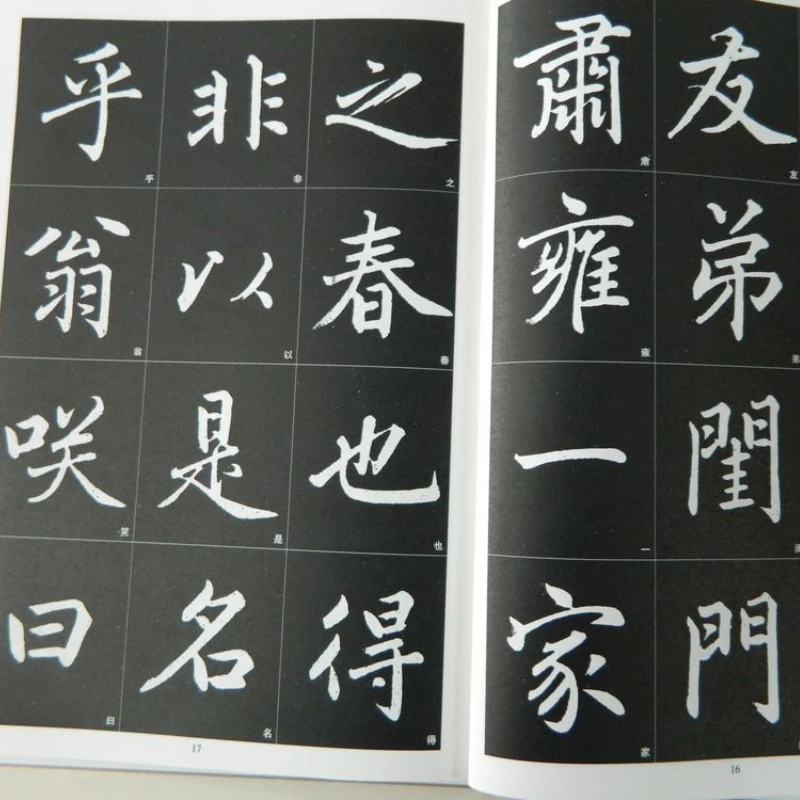 友弟閨門
友
肅雍一家
肅雍一家
16
之春也得
之春也得
非以是名
非以是名
乎翁咲曰
乎翁笑曰
17